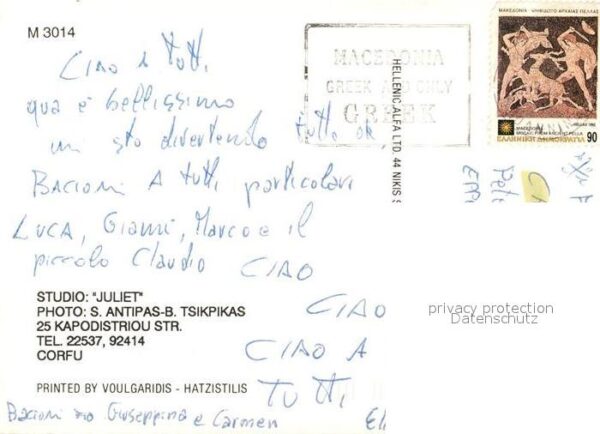 M 3014
MACEDONIA
GREEK AND ONLY
GREEK
ΜΑΚΕΔΟΝΙΑ - ΨΗΦΙΔΩΤΟ ΑΡΧΑΙΑΣ ΠΕΛΛΑΣ
MACEDONIA
MOSAIC FROM ANCIENT PELLA
90
HELLENIC ALFA LTD. 44 NIKIS S
Ciao a tutti
qua è bellissimo
mi sto divertendo tutto ok,
Bacioni A tutti particolari
LUCA, Gianni, Marco e il
piccolo Claudio
CIAO
CIAO
CIAO A
TUTTI
STUDIO: "JULIET"
PHOTO: S. ANTIPAS-B. TSIKPIKAS
25 KAPODISTRIOU STR.
TEL. 22537, 92414
CORFU
PRINTED BY VOULGARIDIS - HATZISTILIS
Bacioni Giuseppina e Carmen
privacy protection
Datenschutz